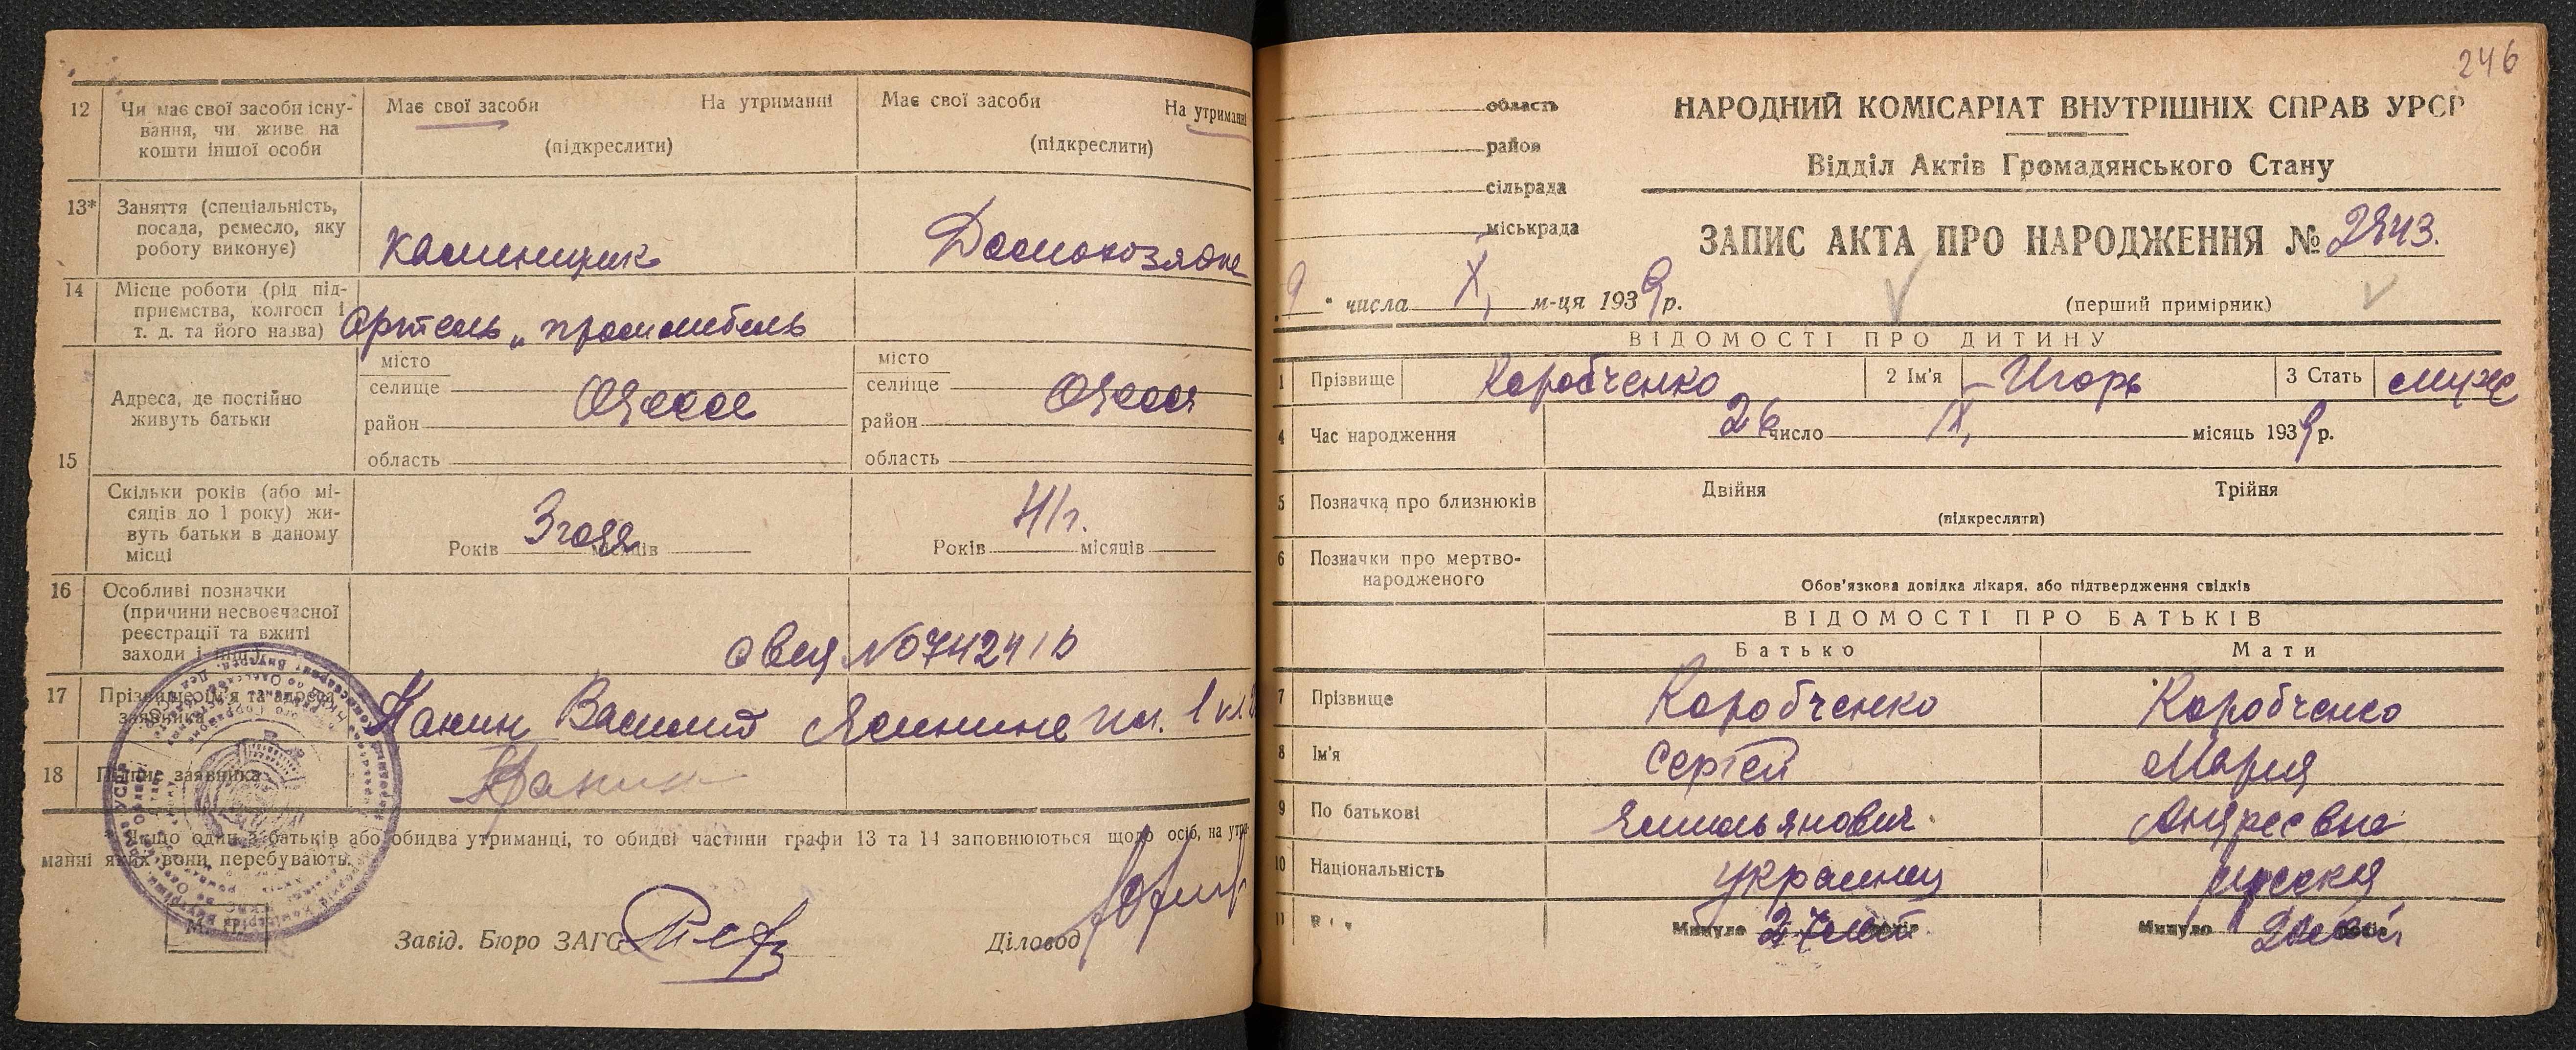 12 Чи має свої засоби існу-
вання, чи живе на
кошти іншої особи
Має свої засоби На утриманні
(підкреслити)
Має свої засоби На утриманні
(підкреслити)
13* Заняття (спеціальність,
посада, ремесло, яку
роботу виконує)
каменщик
Домохозяйка
14 Місце роботи (рід під-
приємства, колгосп і
т. д. та його назва)
Артель „Проммебель
15 Адреса, де постійно
живуть батьки
місто
селище
район
область
Одесса
місто
селище
район
область
Одесса
Скільки років (або мі-
сяців до 1 року) жи-
вуть батьки в даному
місці
Років 3 года місяців
Років місяців
16 Особливі позначки
(причини несвоєчасної
реєстрації та вжиті
заходи і інш.)
17 Прізвище, ім'я та адреса
заявника
Василий
18 Підпис заявника
* Якщо один з батьків або обидва утриманці, то обидві частини графи 13 та 14 заповнюються щодо осіб, на утри-
манні яких вони перебувають.
М. П.
Завід. Бюро ЗАГС
Діловод
246
область
район
сільрада
міськрада
НАРОДНИЙ КОМІСАРІАТ ВНУТРІШНІХ СПРАВ УРСР
Відділ Актів Громадянського Стану
ЗАПИС АКТА ПРО НАРОДЖЕННЯ № 2843.
9 " числа X, м-ця 1939 р.
(перший примірник)
ВІДОМОСТІ ПРО ДИТИНУ
1 Прізвище Коробченко 2 Ім'я Игорь 3 Стать муж
4 Час народження 26 число IX, місяць 1939 р.
5 Позначка про близнюків Двійня Трійня
(підкреслити)
6 Позначки про мертво-
народженого
Обов'язкова довідка лікаря, або підтвердження свідків
ВІДОМОСТІ ПРО БАТЬКІВ
Батько Мати
7 Прізвище Коробченко Коробченко
8 Ім'я Сергей Мария
9 По батькові Емильянович Андреевна
10 Національність украинец русская
11 Минуло 27 лет Минуло